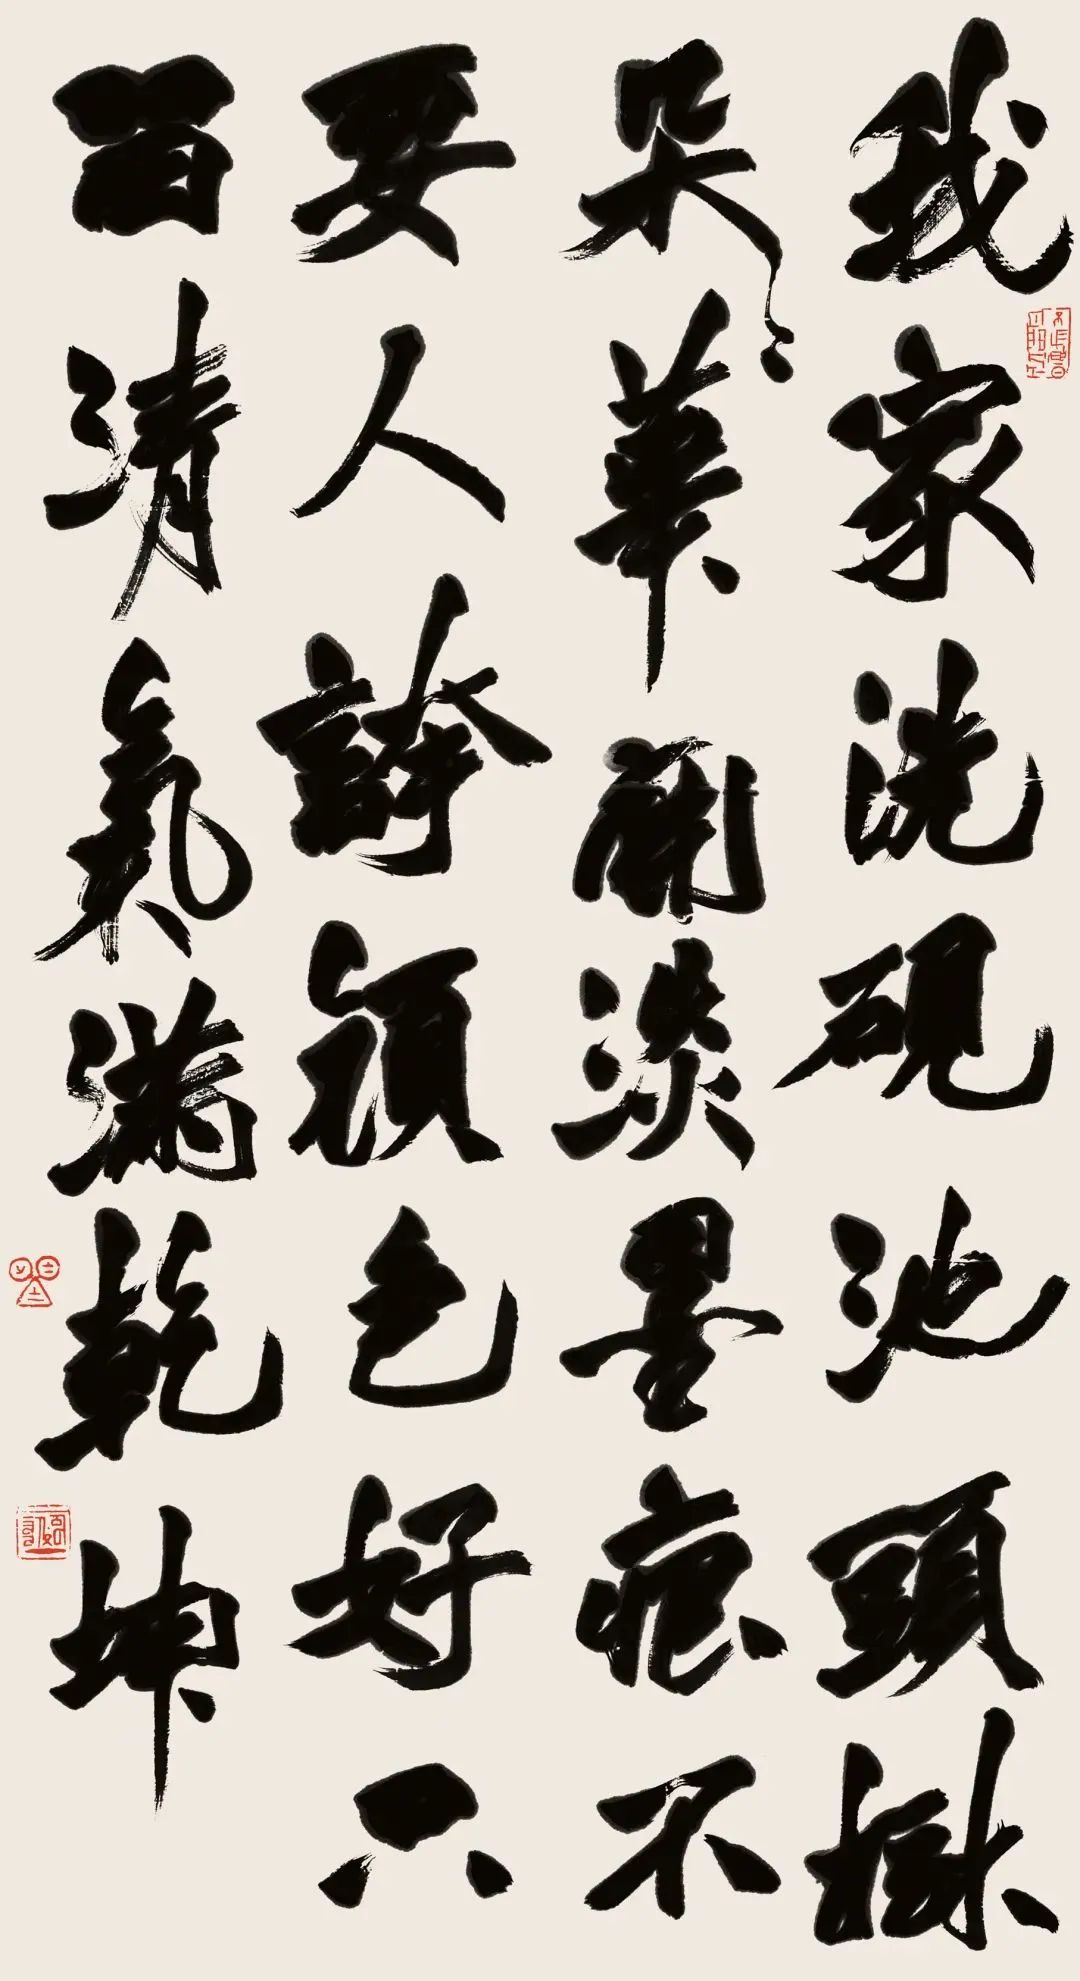 我家洗硯池頭樹
朵々華開淡墨痕不
要人誇顔色好只
留清氣滿乾坤